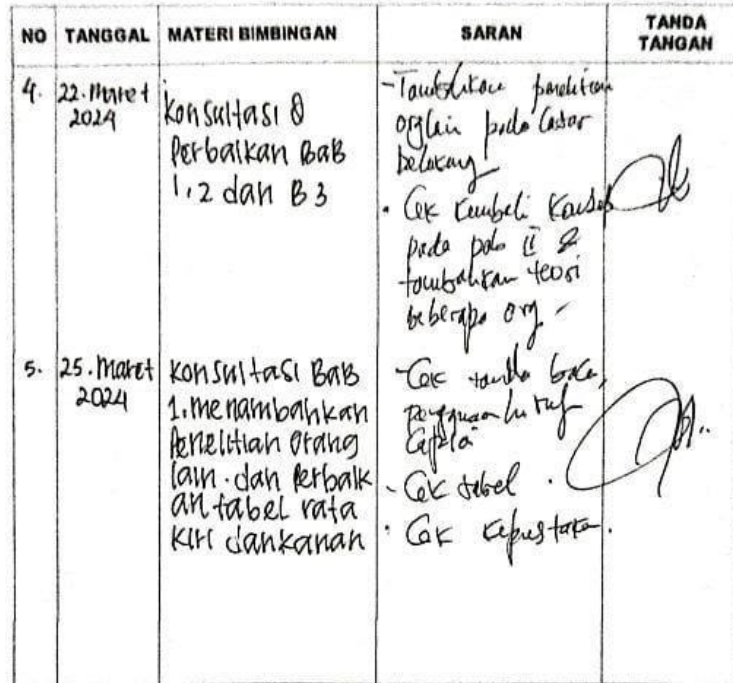 NO TANGGAL MATERI BIMBINGAN SARAN TANDA TANGAN
4.
22. Maret
2024
Konsultasi &
Perbaikan BaB
1,2 dan B 3
- Tambahkan penelitian
org lain pada latar
belakang
• Cek kembali Konsep
pada pada II &
tambahkan teori
beberapa org -
5.
25. Maret
2024
Konsultasi BaB
1. menambahkan
Penelitian Orang
lain. dan Perbaik
an tabel rata
Kiri dan kanan
- Cek tanda baca,
penggunaan huruf
- Cek tabel.
• Cek kepustaka.